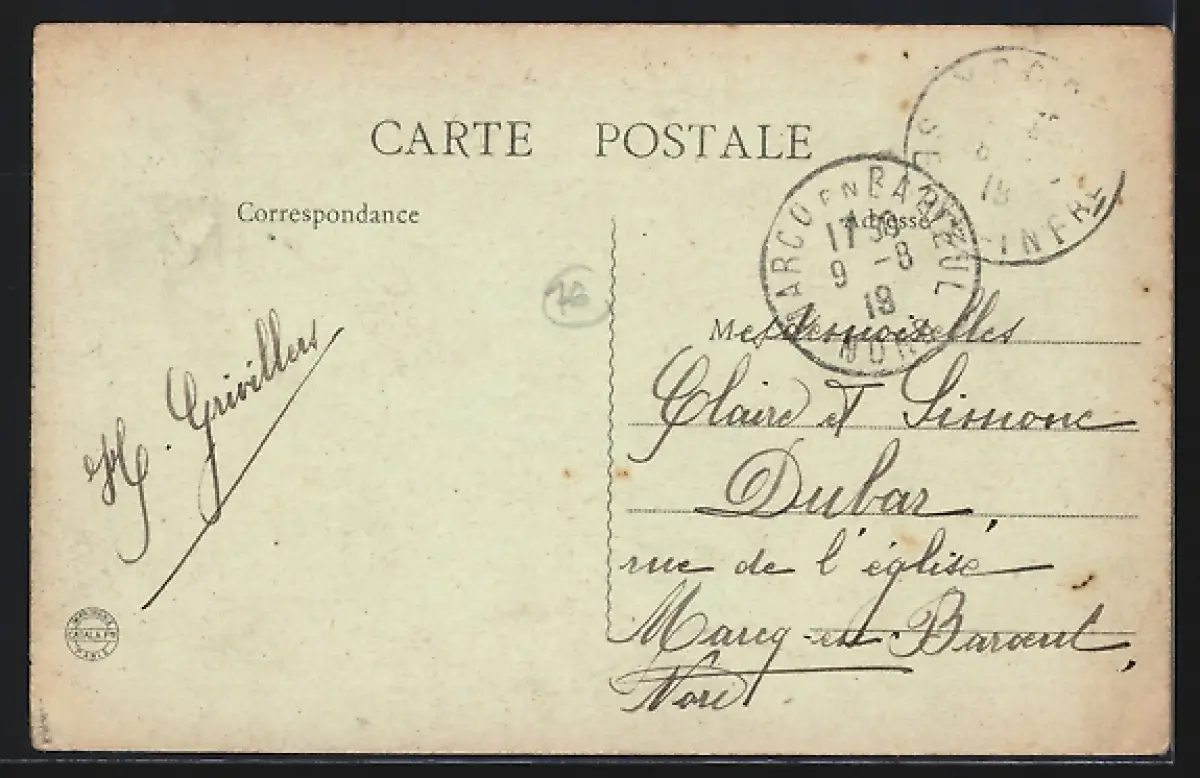 CARTE POSTALE
Correspondance
Adresse
MARCQ EN BARŒUL
17 30
9 -8
19
NORD
SE
INFRE
19
Mesdemoiselles
Claire et Simone
Dubar
rue de l'église
Marcq-en-Barœul,
Nord
H. Grivillers
CATALA FRES
PARIS